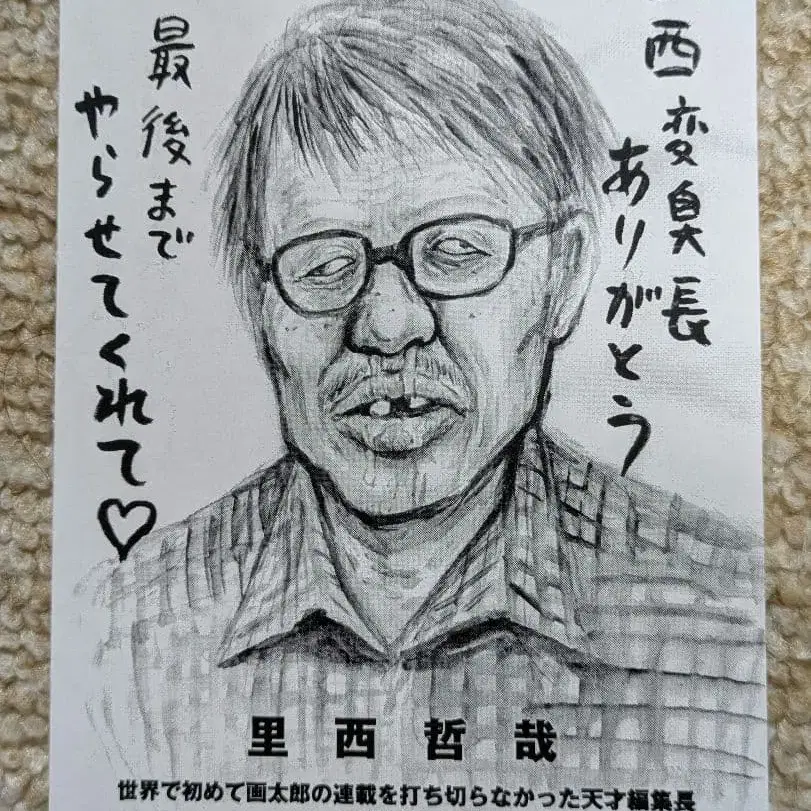 西変臭長
ありがとう
最後まで
やらせてくれて♡
里西哲哉
世界で初めて画太郎の連載を打ち切らなかった天才編集長